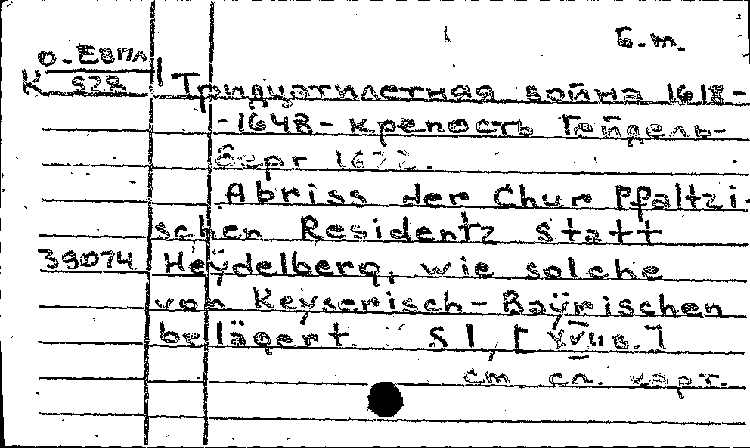 Б.м.
О-ЕвпЛ
К 928
Тридцатилетняя война 1618-
-1648- крепость Гейдель-
берг 1622.
Abriss der Chur Pfaltzi-
schen Residentz statt
39074 Heÿdelberg, wie solche
von Keyserisch-Baÿrischen
belägert S l, [XVIIв.]
см. сл. карт.